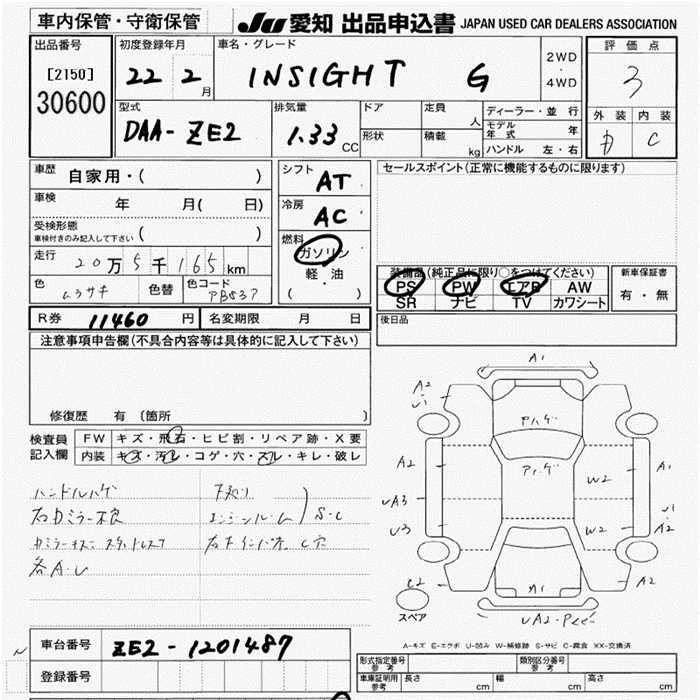 車内保管・守衛保管
JU 愛知 出品申込書 JAPAN USED CAR DEALERS ASSOCIATION
出品番号
[2150]
30600
初度登録年月
22 2月
車名・グレード
INSIGHT G
2WD
4WD
評価点
3
外装 内装
C
型式
DAA-ZE2
排気量
1.33 CC
ドア
定員 人
形状
積載 kg
ディーラー・並行
モデル年式 年
ハンドル 左・右
車歴
自家用・( )
車検
年 月( 日)
受検形態
車検付きのみ記入して下さい ( )
走行
20万5千165km
色
ムラサキ
色替
色コード
PB83P
シフト
AT
冷房
AC
燃料
ガソリン
軽・油
( ・ )
セールスポイント(正常に機能するものに限ります)
装備品(純正品に限り○をつけてください)
PS PW エアB AW
SR ナビ TV カワシート
新車保証書
有・無
後日品
R券 11460 円
名変期限 月 日
注意事項申告欄(不具合内容等は具体的に記入して下さい)
修復歴 有 [箇所 ]
検査員
記入欄
FW キズ・飛石・ヒビ割・リペア跡・X要
内装 キズ・汚レ・コゲ・穴・スレ・キレ・破レ
ハンドルハゲ
下廻リ
エンジンルーム
S・C
各A・U
A1
A2
U1
A2
UA3
U3
W2
W2
A1
A2
A2
A1
スペア
A-キズ E-エクボ U-凹み W-補修跡 S-サビ C-腐食 XX-交換済
車台番号
ZE2-1201487
登録番号
形式指定番号
参考
類別区分番号
参考
車庫証明用
参考
長さ cm
幅 cm
高さ cm